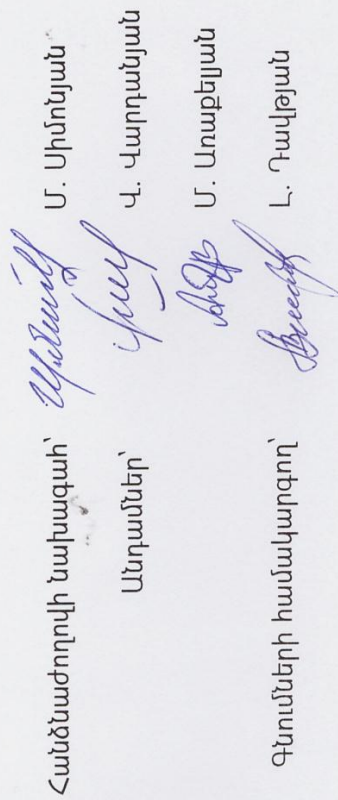 Հանձնաժողովի նախագահ՝ Մ. Սիմոնյան
Անդամներ՝ Վ. Վարդանյան
Մ. Առաքելյան
Գնումների համակարգող՝ Լ. Դավթյան